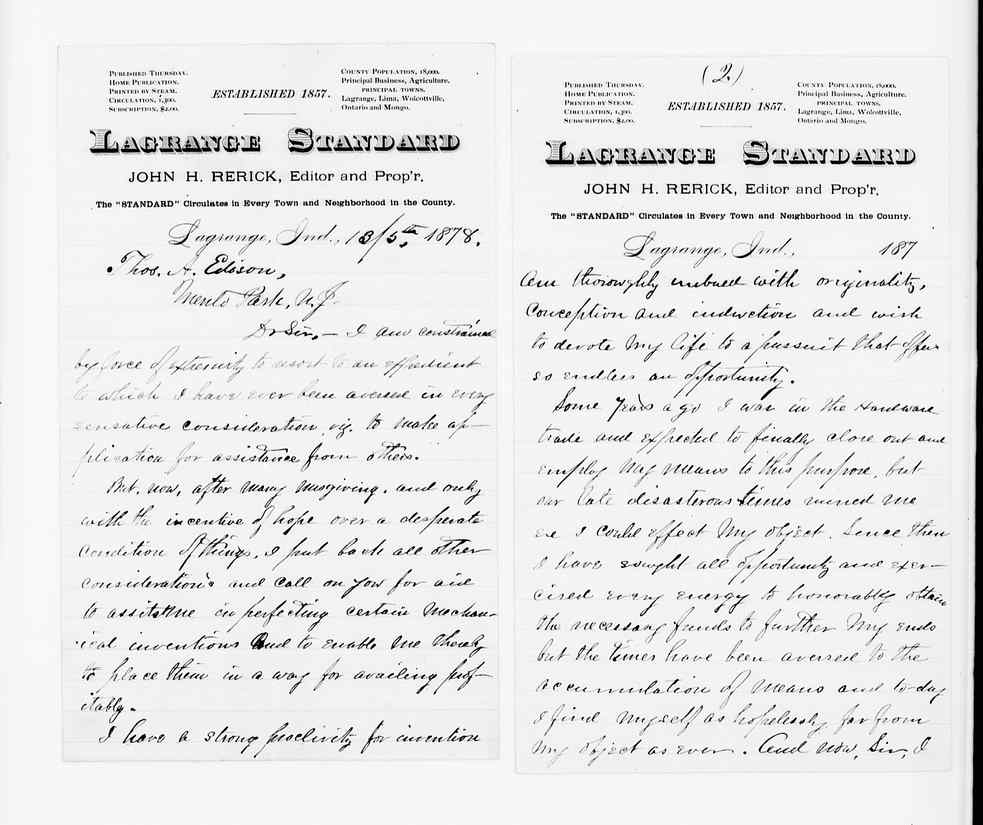 PUBLISHED THURSDAY.
HOME PUBLICATION.
PRINTED BY STEAM.
CIRCULATION, 1,300.
SUBSCRIPTION, $2.00.
ESTABLISHED 1857.
COUNTY POPULATION, 18,000.
Principal Business, Agriculture.
PRINCIPAL TOWNS.
Lagrange, Lima, Wolcottville,
Ontario and Mongo.
LAGRANGE STANDARD
JOHN H. RERICK, Editor and Prop'r.
The "STANDARD" Circulates in Every Town and Neighborhood in the County.
Lagrange, Ind., 13/5th, 1878.
Thos. A. Edison,
Menlo Park, N.J.
Dr Sir, — I am constrained
by force of extremity to resort to an expedient
to which I have ever been aversed in every
sensative consideration viz. to make ap-
plication for assistance from others.
But, now, after many misgiving, and only
with the incentive of hope over a desperate
condition of things, I put back all other
considerations and call on you for aid
to assist me in perfecting certain mechan-
ical inventions and to enable me thereby
to place them in a way for availing prof-
itably.
I have a strong proclivity for invention
(2.)
PUBLISHED THURSDAY.
HOME PUBLICATION.
PRINTED BY STEAM.
CIRCULATION, 1,300.
SUBSCRIPTION, $2.00.
ESTABLISHED 1857.
COUNTY POPULATION, 18,000.
Principal Business, Agriculture.
PRINCIPAL TOWNS.
Lagrange, Lima, Wolcottville,
Ontario and Mongo.
LAGRANGE STANDARD
JOHN H. RERICK, Editor and Prop'r.
The "STANDARD" Circulates in Every Town and Neighborhood in the County.
Lagrange, Ind., 187
am thoroughly imbued with originality,
conception and induction and wish
to devote my life to a pursuit that offers
so endless an opportunity.
Some years ago I was in the Hardware
trade and expected to finally close out and
employ my means to this purpose, but
our late disasterous times ruined me
ere I could effect my object. Since then
I have sought all opportunity and exer-
cised every energy to honorably obtain
the necessary funds to further my ends
but the times have been aversed to the
accumulation of means and to-day
I find myself as hopelessly far from
my object as ever. And now, Sir, I